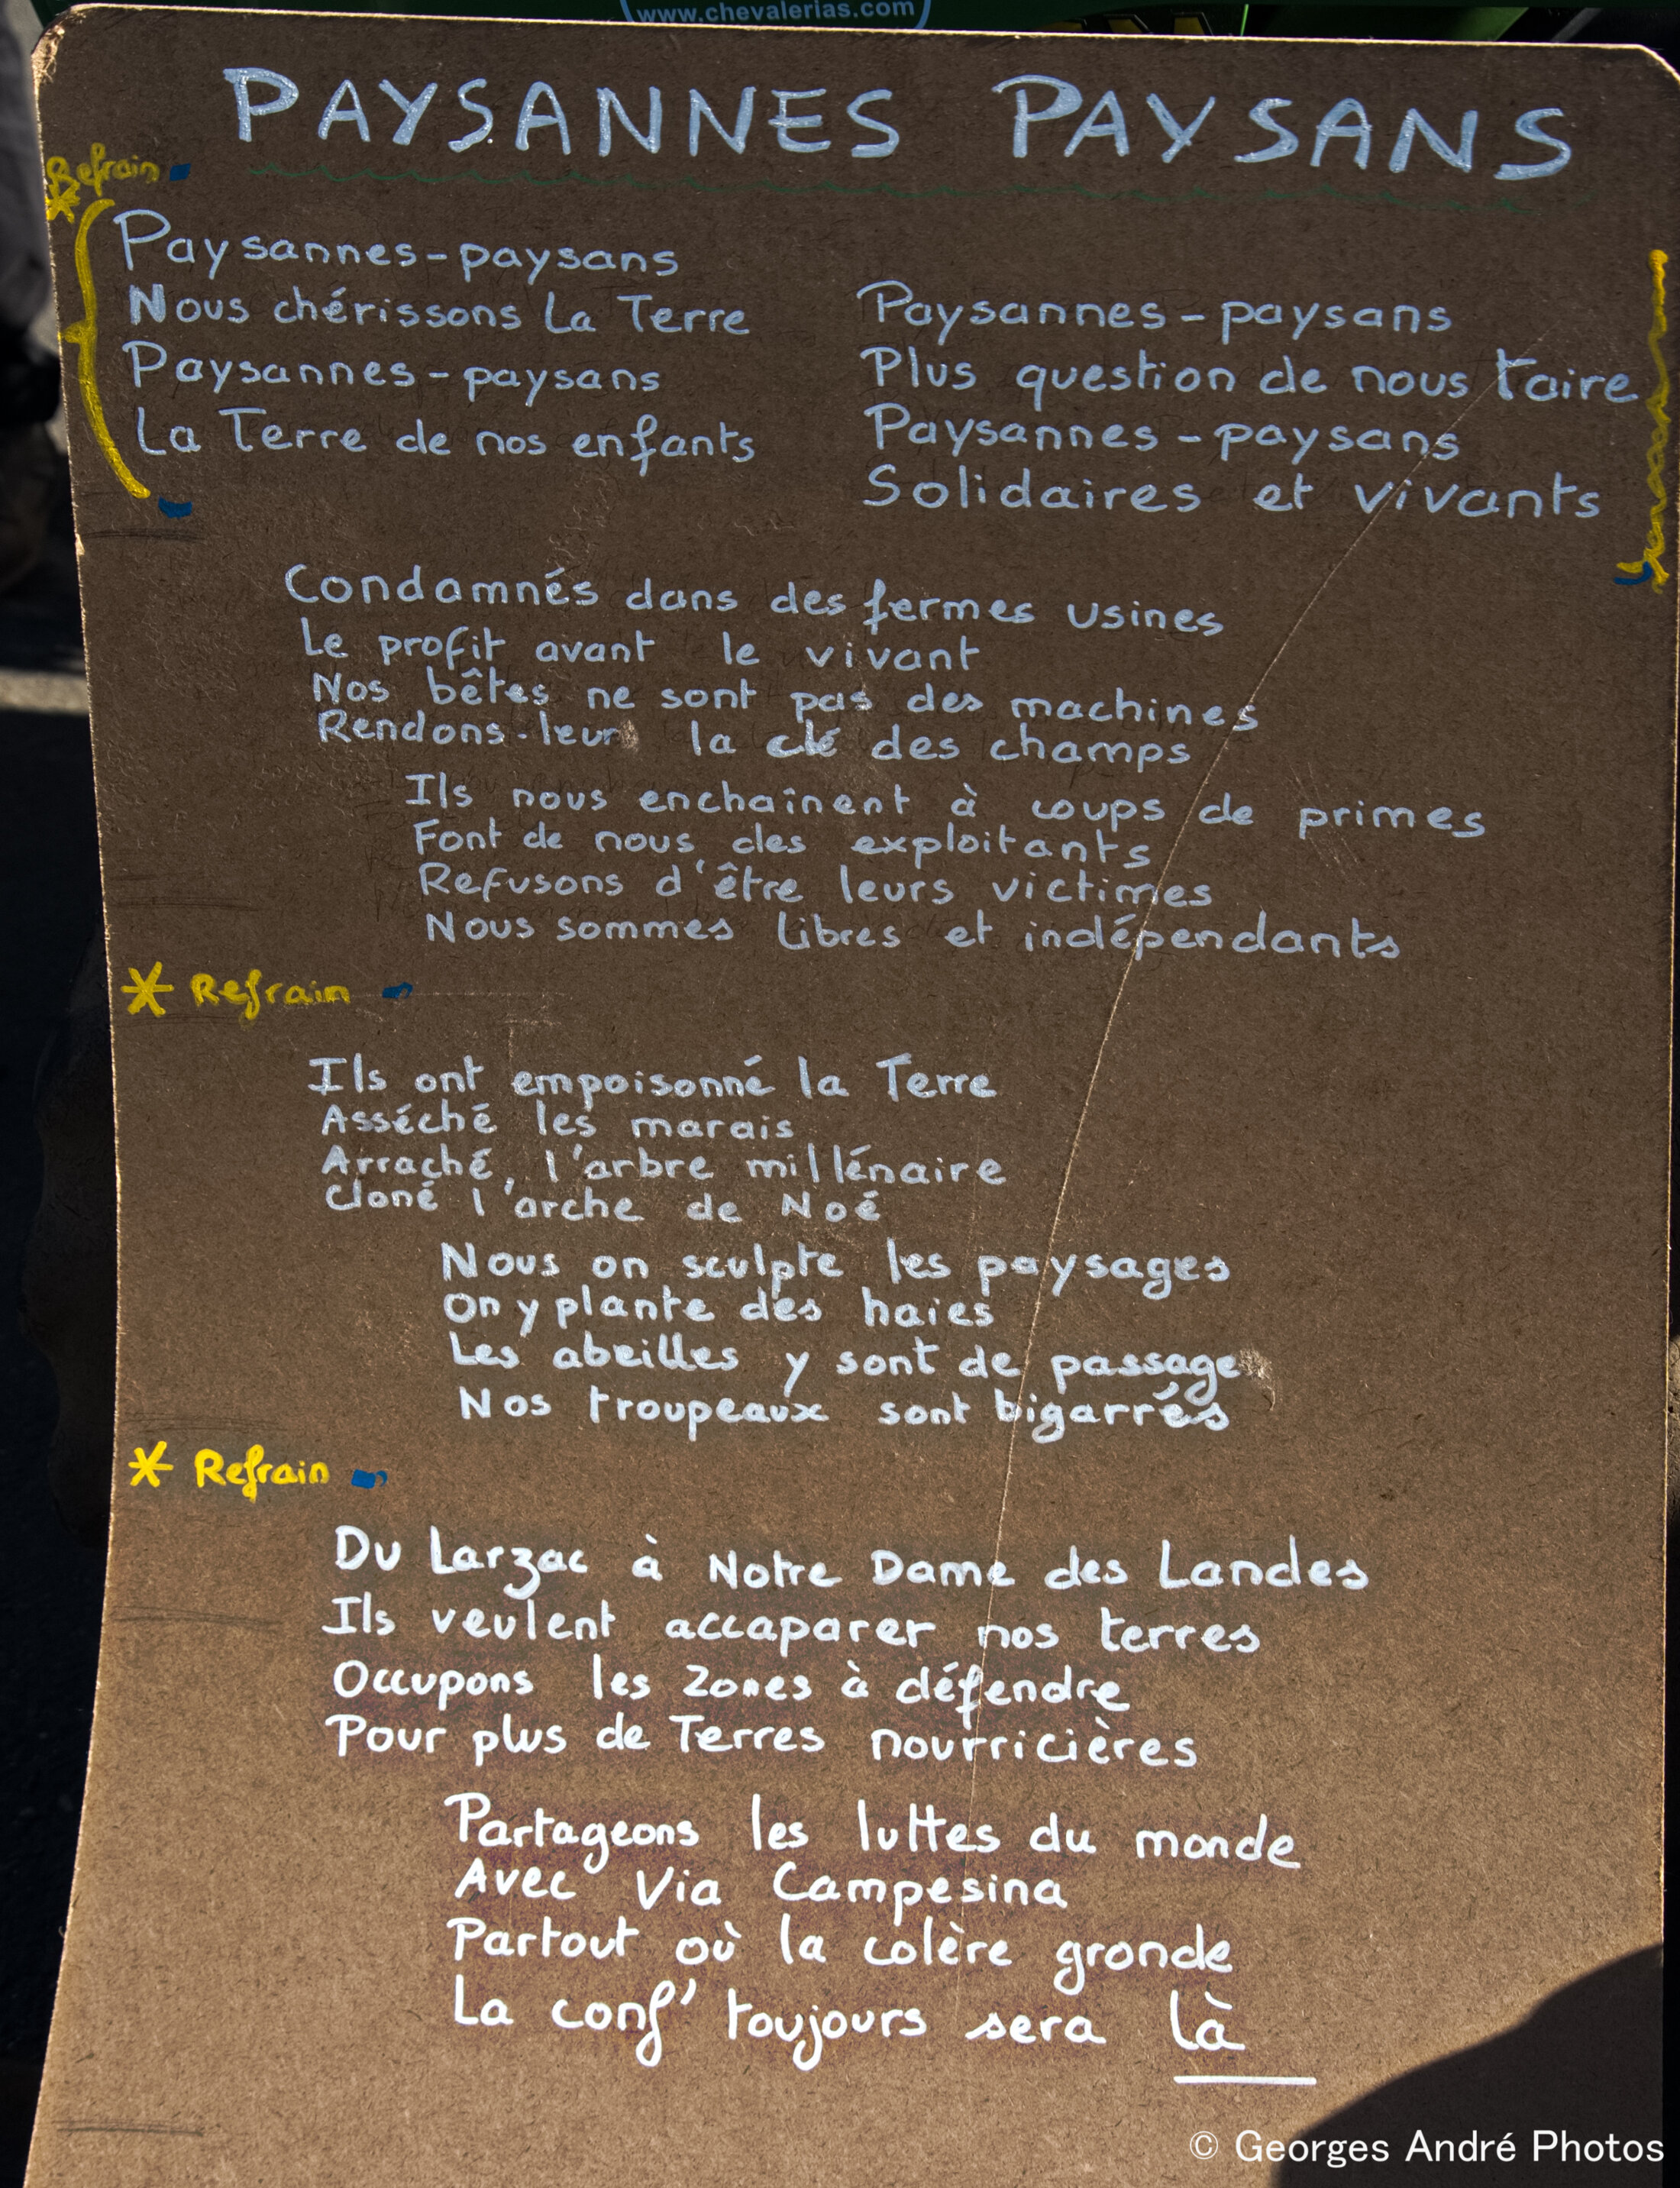 www.chevalerias.com
PAYSANNES PAYSANS
Refrain
*
Paysannes-paysans
Nous chérissons La Terre
Paysannes-paysans
La Terre de nos enfants
Paysannes-paysans
Plus question de nous taire
Paysannes-paysans
Solidaires et vivants
Condamnés dans des fermes usines
Le profit avant le vivant
Nos bêtes ne sont pas des machines
Rendons-leur la clé des champs
Ils nous enchaînent à coups de primes
Font de nous des exploitants
Refusons d'être leurs victimes
Nous sommes libres et indépendants
* Refrain
Ils ont empoisonné la Terre
Asséché les marais
Arraché, l'arbre millénaire
Cloné l'arche de Noé
Nous on sculpte les paysages
On y plante des haies
Les abeilles y sont de passage
Nos troupeaux sont bigarrés
* Refrain
Du Larzac à Notre Dame des Landes
Ils veulent accaparer nos terres
Occupons les Zones à défendre
Pour plus de Terres nourricières
Partageons les luttes du monde
Avec Via Campesina
Partout où la colère gronde
La conf' toujours sera là
© Georges André Photos